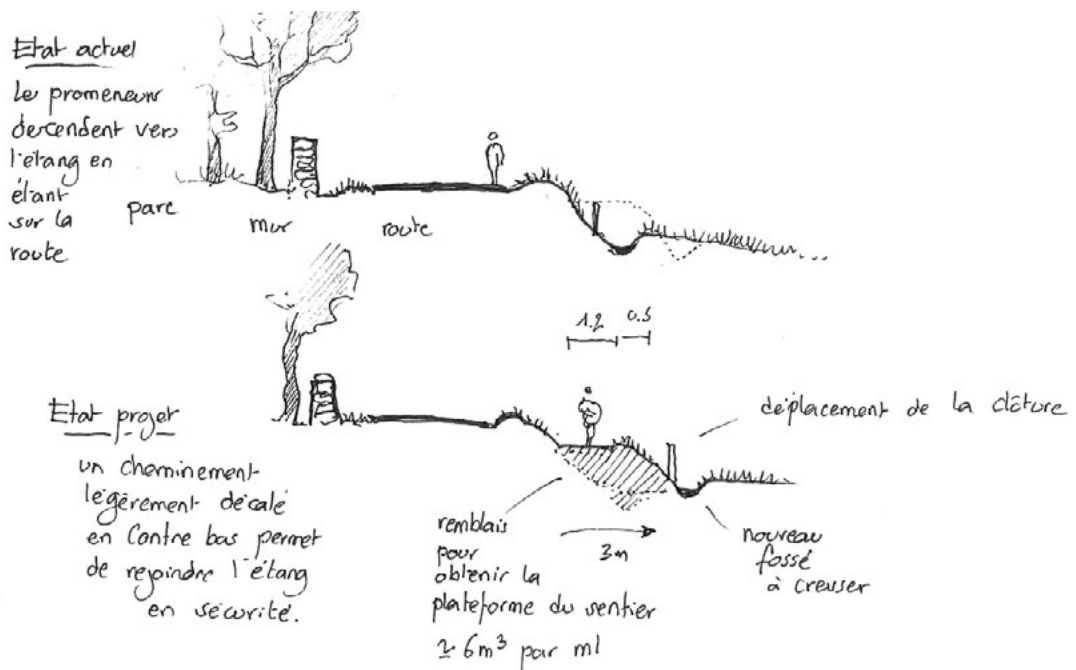 Etat actuel
Le promeneurs
descendent vers
l'étang en
étant
sur la
route
parc
mur
route
1.2
0.5
Etat projet
un cheminement
légèrement décalé
en contre bas permet
de rejoindre l'étang
en sécurité.
déplacement de la clôture
remblais
pour
obtenir la
plateforme du sentier
≃ 6m³ par ml
3m
nouveau
fossé
à creuser